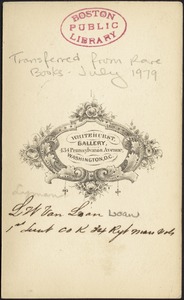 BOSTON
PUBLIC
LIBRARY
Transferred from Rare
Books - July 1979
WHITEHURST
GALLERY,
434 Pennsylvania Avenue,
WASHINGTON, D.C.
Lyman
L W Van Loan Loan
1st Lieut Co K 24 Regt Mass Vols